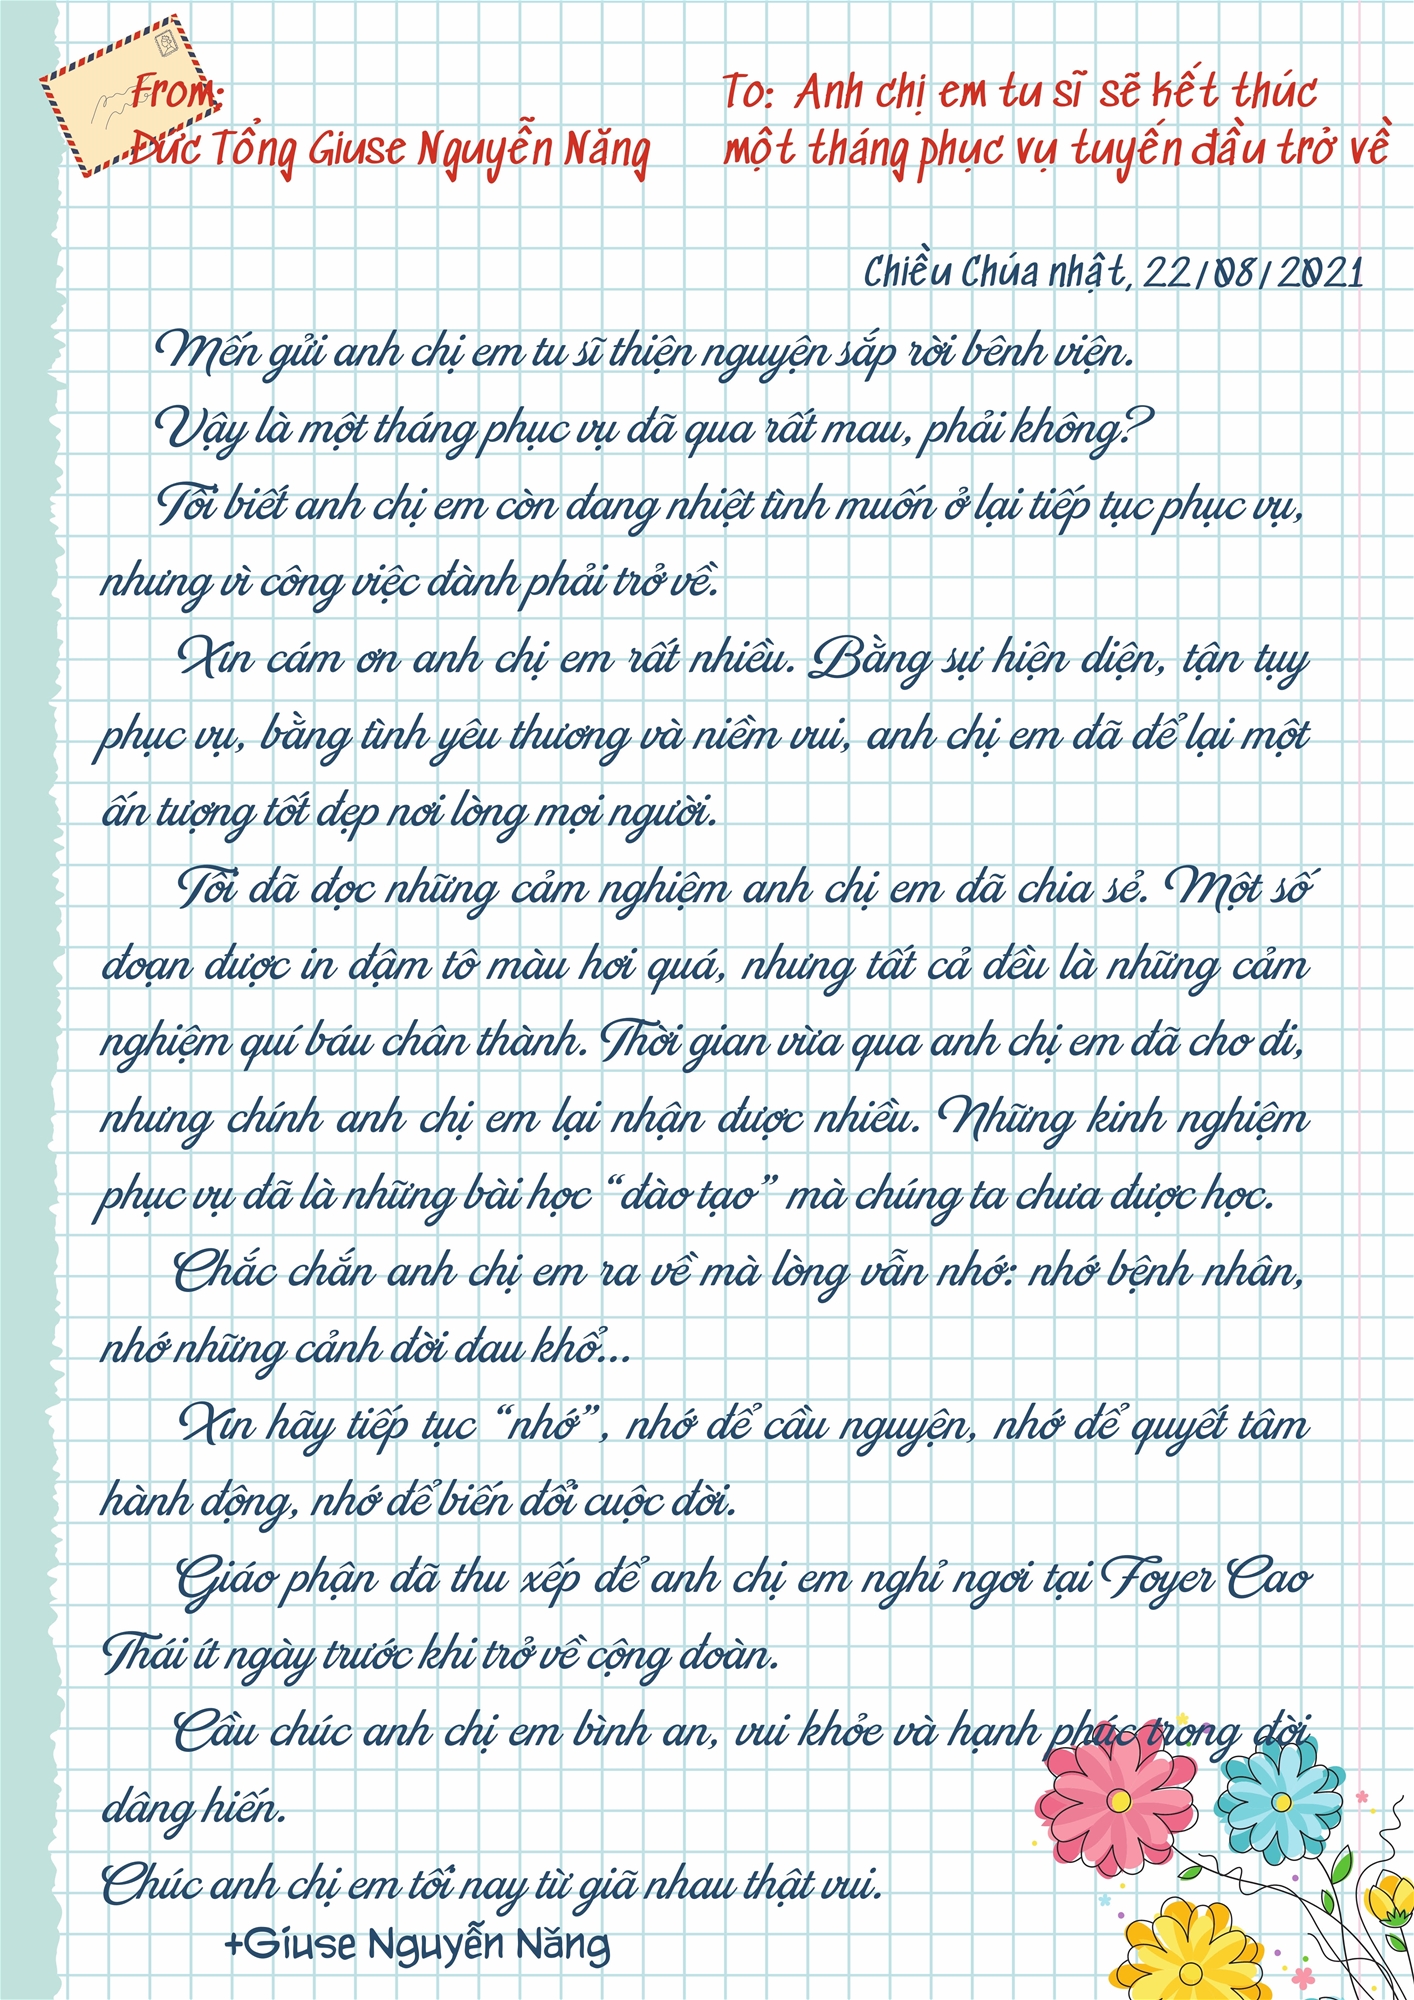 From:
Đức Tổng Giuse Nguyễn Năng
To: Anh chị em tu sĩ sẽ kết thúc
một tháng phục vụ tuyến đầu trở về
Chiều Chúa nhật, 22/08/2021
Mến gửi anh chị em tu sĩ thiện nguyện sắp rời bênh viện.
Vậy là một tháng phục vụ đã qua rất mau, phải không?
Tôi biết anh chị em còn đang nhiệt tình muốn ở lại tiếp tục phục vụ,
nhưng vì công việc đành phải trở về.
Xin cám ơn anh chị em rất nhiều. Bằng sự hiện diện, tận tụy
phục vụ, bằng tình yêu thương và niềm vui, anh chị em đã để lại một
ấn tượng tốt đẹp nơi lòng mọi người.
Tôi đã đọc những cảm nghiệm anh chị em đã chia sẻ. Một số
đoạn được in đậm tô màu hơi quá, nhưng tất cả đều là những cảm
nghiệm quí báu chân thành. Thời gian vừa qua anh chị em đã cho đi,
nhưng chính anh chị em lại nhận được nhiều. Những kinh nghiệm
phục vụ đã là những bài học “đào tạo” mà chúng ta chưa được học.
Chắc chắn anh chị em ra về mà lòng vẫn nhớ: nhớ bệnh nhân,
nhớ những cảnh đời đau khổ...
Xin hãy tiếp tục “nhớ”, nhớ để cầu nguyện, nhớ để quyết tâm
hành động, nhớ để biến đổi cuộc đời.
Giáo phận đã thu xếp để anh chị em nghỉ ngơi tại Foyer Cao
Thái ít ngày trước khi trở về cộng đoàn.
Cầu chúc anh chị em bình an, vui khỏe và hạnh phúc trong đời
dâng hiến.
Chúc anh chị em tối nay từ giã nhau thật vui.
+Giuse Nguyễn Năng